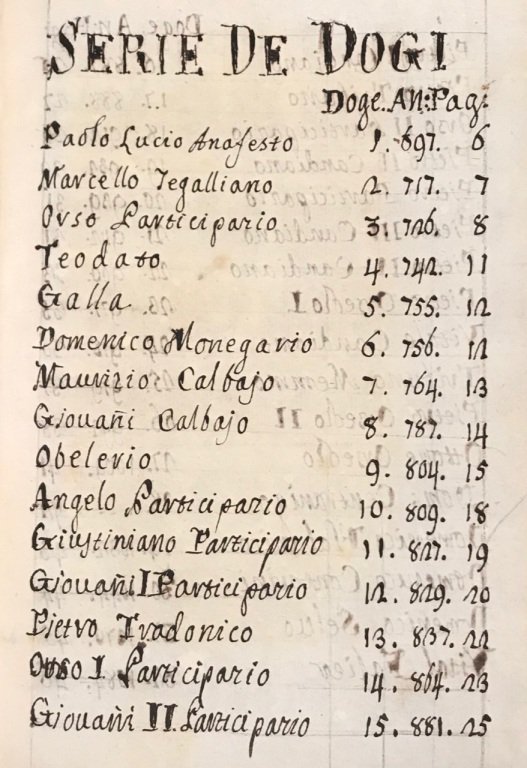 SERIE DE DOGI
Doge. An: Pag:
Paolo Lucio Anafesto 1. 697. 6
Marcello Tegalliano 2. 717. 7
Orso Participario 3. 726. 8
Teodato 4. 742. 11
Galla 5. 755. 12
Domenico Monegario 6. 756. 12
Maurizio Calbajo 7. 764. 13
Giovañi Calbajo 8. 787. 14
Obelerio 9. 804. 15
Angelo Participario 10. 809. 18
Giustiniano Participario 11. 827. 19
Giovañi I Participario 12. 829. 20
Pietro Tradonico 13. 837. 22
Orso I. Participario 14. 864. 23
Giovañi II. Participario 15. 881. 25